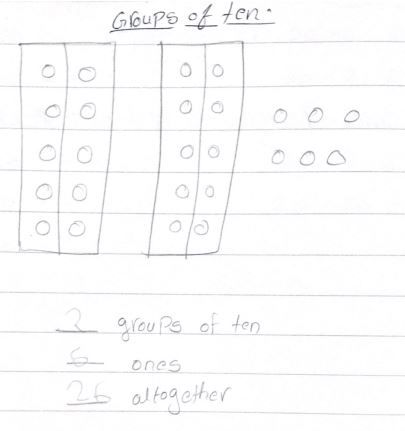 Groups of ten.
2 groups of ten
6 ones
26 altogether